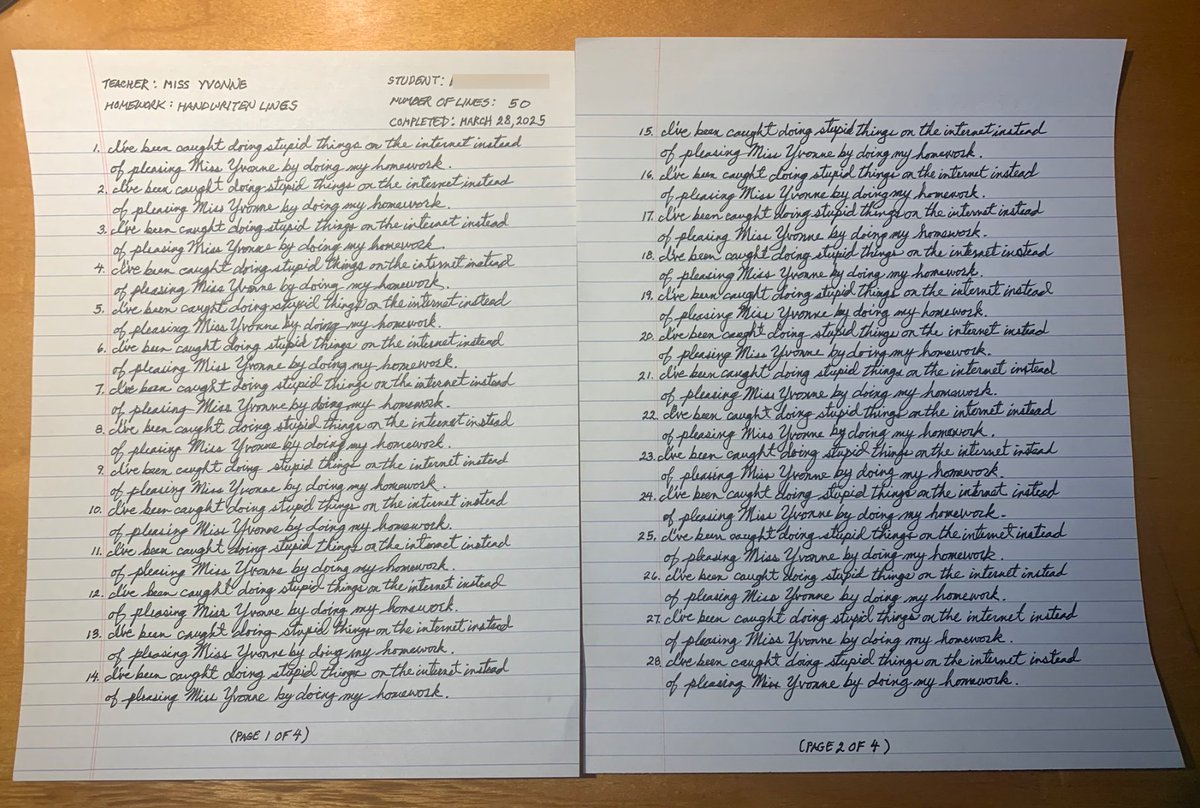 TEACHER: MISS YVONNE
HOMEWORK: HANDWRITEN LINES
STUDENT:
NUMBER OF LINES: 50
COMPLETED: MARCH 28, 2025
1. I've been caught doing stupid things on the internet instead
of pleasing Miss Yvonne by doing my homework.
2. I've been caught doing stupid things on the internet instead
of pleasing Miss Yvonne by doing my homework.
3. I've been caught doing stupid things on the internet instead
of pleasing Miss Yvonne by doing my homework.
4. I've been caught doing stupid things on the internet instead
of pleasing Miss Yvonne by doing my homework.
5. I've been caught doing stupid things on the internet instead
of pleasing Miss Yvonne by doing my homework.
6. I've been caught doing stupid things on the internet instead
of pleasing Miss Yvonne by doing my homework.
7. I've been caught doing stupid things on the internet instead
of pleasing Miss Yvonne by doing my homework.
8. I've been caught doing stupid things on the internet instead
of pleasing Miss Yvonne by doing my homework.
9. I've been caught doing stupid things on the internet instead
of pleasing Miss Yvonne by doing my homework.
10. I've been caught doing stupid things on the internet instead
of pleasing Miss Yvonne by doing my homework.
11. I've been caught doing stupid things on the internet instead
of pleasing Miss Yvonne by doing my homework.
12. I've been caught doing stupid things on the internet instead
of pleasing Miss Yvonne by doing my homework.
13. I've been caught doing stupid things on the internet instead
of pleasing Miss Yvonne by doing my homework.
14. I've been caught doing stupid things on the internet instead
of pleasing Miss Yvonne by doing my homework.
(PAGE 1 OF 4)
15. I've been caught doing stupid things on the internet instead
of pleasing Miss Yvonne by doing my homework.
16. I've been caught doing stupid things on the internet instead
of pleasing Miss Yvonne by doing my homework.
17. I've been caught doing stupid things on the internet instead
of pleasing Miss Yvonne by doing my homework.
18. I've been caught doing stupid things on the internet instead
of pleasing Miss Yvonne by doing my homework.
19. I've been caught doing stupid things on the internet instead
of pleasing Miss Yvonne by doing my homework.
20. I've been caught doing stupid things on the internet instead
of pleasing Miss Yvonne by doing my homework.
21. I've been caught doing stupid things on the internet instead
of pleasing Miss Yvonne by doing my homework.
22. I've been caught doing stupid things on the internet instead
of pleasing Miss Yvonne by doing my homework.
23. I've been caught doing stupid things on the internet instead
of pleasing Miss Yvonne by doing my homework.
24. I've been caught doing stupid things on the internet instead
of pleasing Miss Yvonne by doing my homework.
25. I've been caught doing stupid things on the internet instead
of pleasing Miss Yvonne by doing my homework.
26. I've been caught doing stupid things on the internet instead
of pleasing Miss Yvonne by doing my homework.
27. I've been caught doing stupid things on the internet instead
of pleasing Miss Yvonne by doing my homework.
28. I've been caught doing stupid things on the internet instead
of pleasing Miss Yvonne by doing my homework.
(PAGE 2 OF 4)